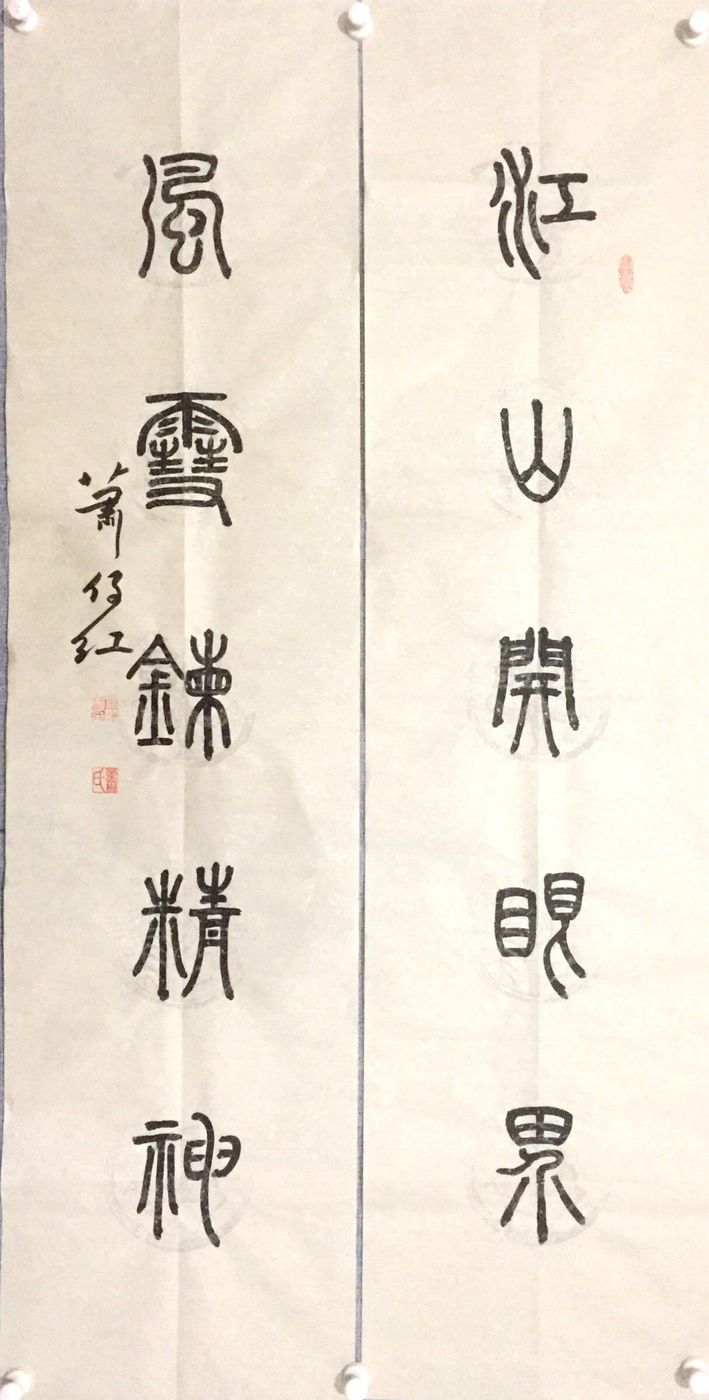 江山開眼界
風雪鍊精神
蕭得紅